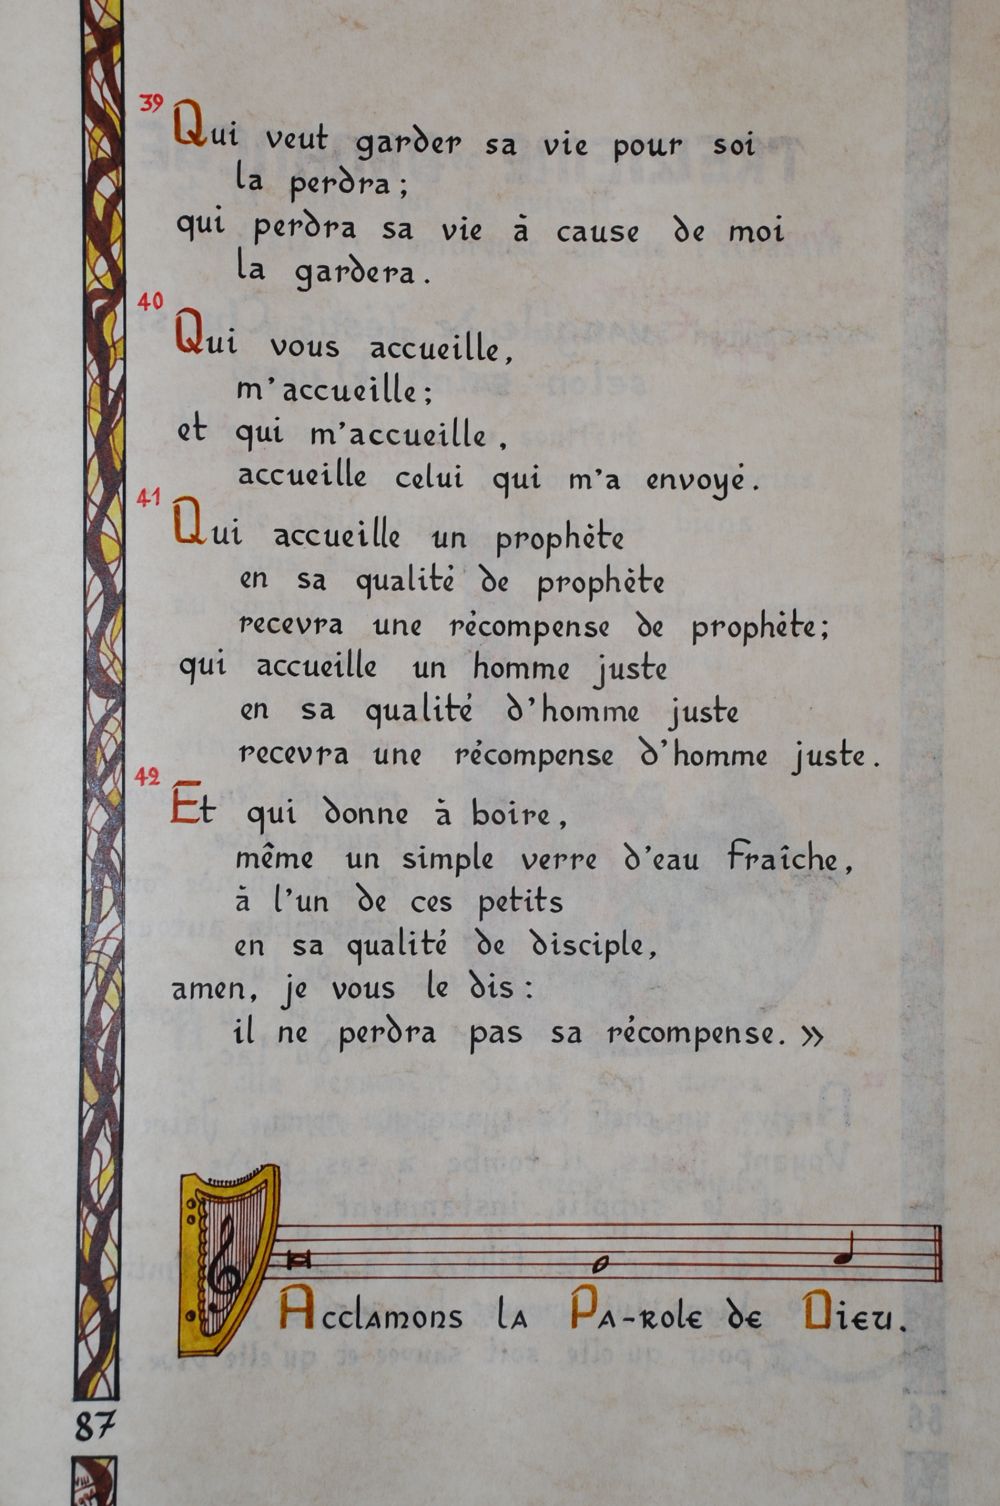 39
Qui veut garder sa vie pour soi
la perdra ;
qui perdra sa vie à cause de moi
la gardera .
40
Qui vous accueille,
m'accueille ;
et qui m'accueille ,
accueille celui qui m'a envoyé .
41
Qui accueille un prophète
en sa qualité de prophète
recevra une récompense de prophète ;
qui accueille un homme juste
en sa qualité d'homme juste
recevra une récompense d'homme juste .
42
Et qui donne à boire ,
même un simple verre d'eau fraîche ,
à l'un de ces petits
en sa qualité de disciple ,
amen, je vous le dis :
il ne perdra pas sa récompense. »
Acclamons la Pa-role de Dieu .
87